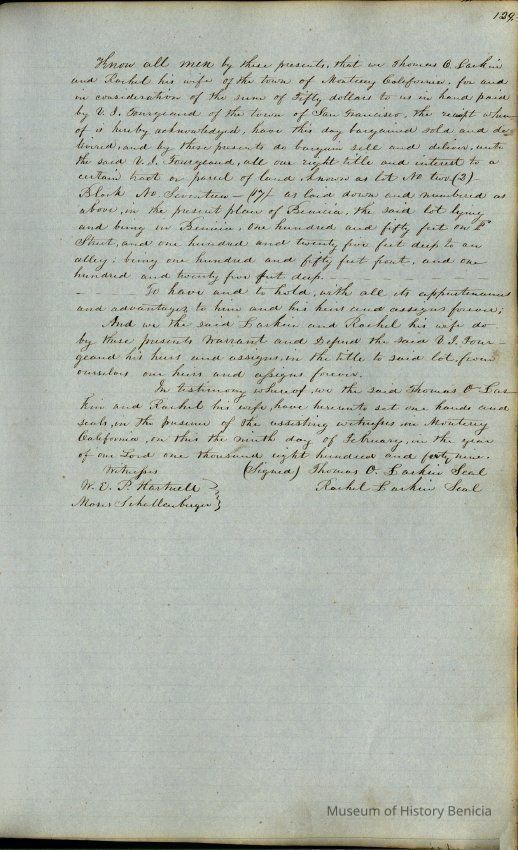 129
Know all men by these presents, that we Thomas O. Larkin
and Rachel his wife of the town of Monterey California, for and
in consideration of the sum of Fifty dollars to us in hand paid
by V. J. Fourgeaud of the town of San Francisco, the receipt where
of is hereby acknowledged, have this day bargained sold and de
livered, and by these presents do bargain sell and deliver, unto
the said V. J. Fourgeaud, all our right title and interest to a
certain tract or parcel of land, known as lot No two (2)
Block No Seventeen - (17) as laid down and numbered as
above, in the present plan of Benicia, the said lot lying
and being in Benicia, one hundred and fifty feet on
Street, and one hundred and twenty five feet deep to an
alley, being one hundred and fifty feet front, and one
hundred and twenty five feet deep.
To have and to hold, with all its appurtenances
and advantages to him and his heirs and assigns forever;
And we the said Larkin and Rachel his wife do
by these presents Warrant and Defend the said V. J. Four-
geaud his heirs and assigns, in the title to said lot from
ourselves our heirs and assigns forever.
In testimony whereof, we the said Thomas O Lar-
kin and Rachel his wife, have hereunto set our hands and
seals, in the presence of the assisting witnesses in Monterey
California, on this the ninth day of February, in the year
of our Lord one thousand eight hundred and forty nine.
Witness (Signed) Thomas O. Larkin Seal
W. E. P. Hartnell Rachel Larkin Seal
Moses Schallenberger
Museum of History Benicia